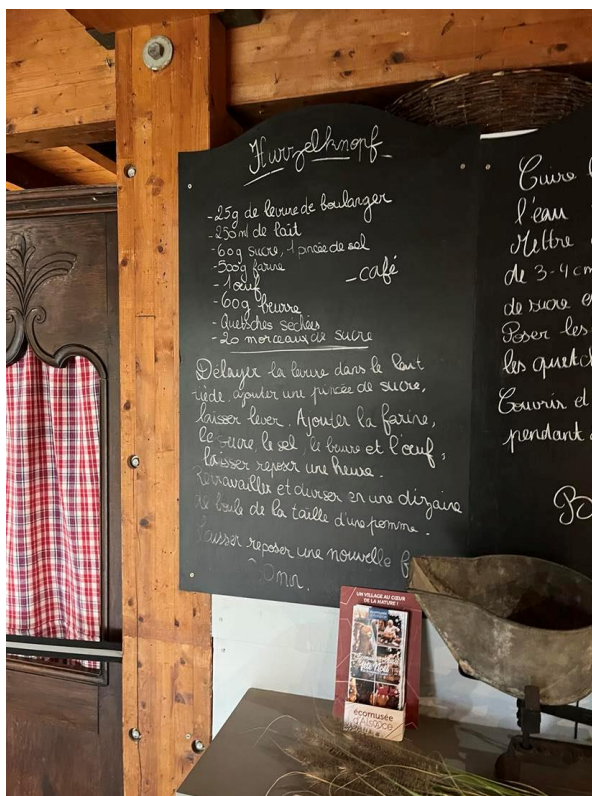 Hurzelknopf
- 25g de levure de boulanger
- 250ml de lait
- 60g sucre, 1 pincée de sel
- 500g farine
- 1 œuf
- café
- 60g beurre
- Quetsches séchées
- 20 morceaux de sucre
Délayer la levure dans le lait
tiède, ajouter une pincée de sucre,
laisser lever. Ajouter la farine,
le sucre, le sel, le beurre et l'œuf,
laisser reposer une heure.
Retravailler et diviser en une dizaine
de boule de la taille d'une pomme.
Laisser reposer une nouvelle
30mn.
Cuire
l'eau
Mettre
de 3-4 cm
de sucre
Poser les
les
Couvrir et
pendant
UN VILLAGE AU CŒUR
DE LA NATURE !
écomusée
d'Alsace